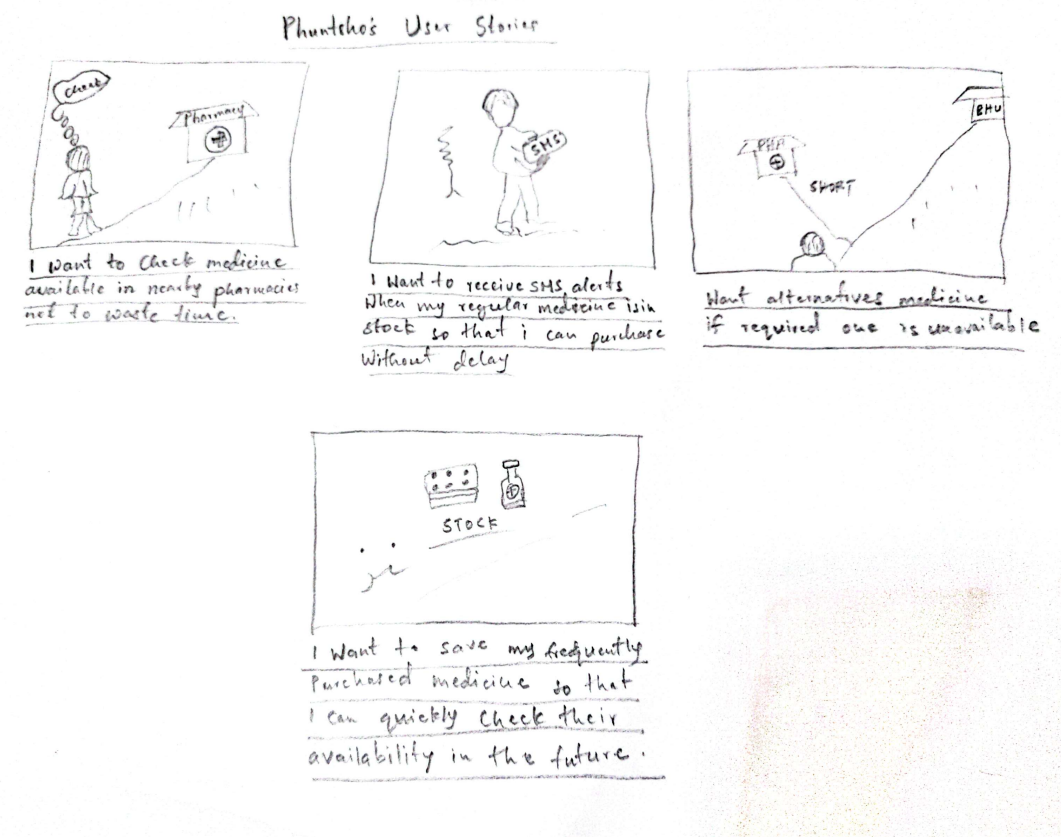 Phuntsho's User Stories
Check
Pharmacy
I want to check medicine
available in nearby pharmacies
not to waste time.
SMS
I want to receive SMS alerts
when my regular medicine is in
stock so that i can purchase
without delay
BHU
PHP
SHORT
Want alternatives medicine
if required one is unavailable
STOCK
I want to save my frequently
purchased medicine so that
I can quickly check their
availability in the future.